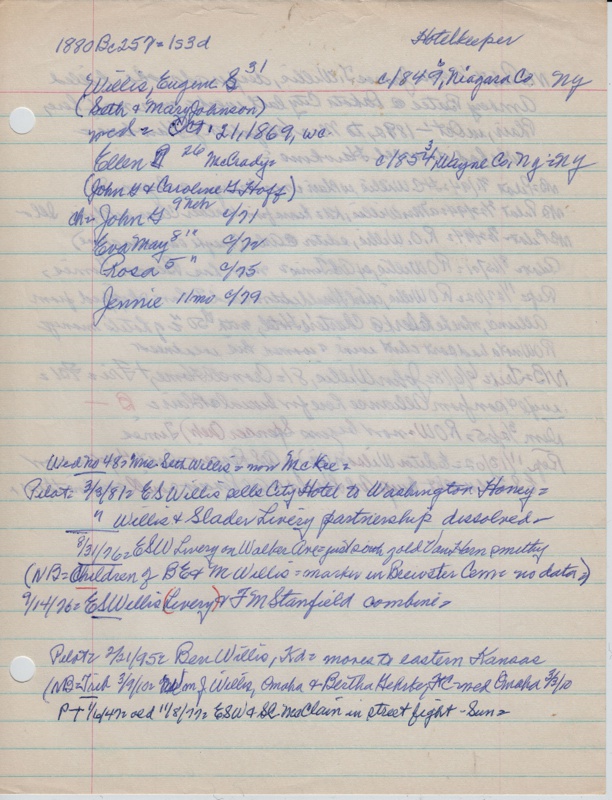 1880Bc257=1s3d Hotelkeeper
Willis, Eugene S 31 c/1849, Niagara Co NY
(Seth & Mary Johnson)
med = Oct. 21, 1869, wc.
Ellen 26 McCrady= c/1854, Wayne Co, NY=NY
(John G & Caroline G Hoff)
ch= John G 9 neb c/71
Eva May 8 " c/72
Rosa 5 " c/75
Jennie 11mo c/79
Wed no 48= Mrs Seth Willis = now McKee =
Pilot= 3/3/81= ES Willis sells City Hotel to Washington Honey=
" Willis & Slader Livery partnership dissolved=
8/31/76= ESW Livery on Walker Ave= just south gold Van Horn smithy
(NB= Children of BE & M Willis = marker in Brewster Cem= no dates=)
9/14/76= ES Willis (Livery) & FM Stanfield combine=
Pilot= 2/21/95= Ben Willis, Kd= moves to eastern Kansas
(NB= Trib 3/9/10= J Willis, Omaha & Bertha med Omaha 3/3/10
PT 1/6/47= old 11/8/77= ESW & McClain in street fight - Sun=